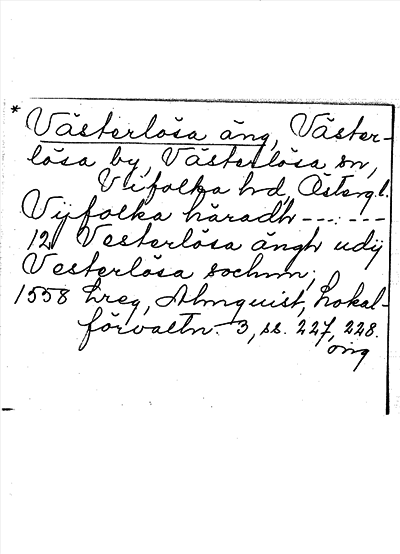 * Västerlösa äng, Väster-
lösa by, Västerlösa sn,
Vifolka hd, Östergl.
Vijfolka häradh --- : ---
12 Vesterlösa ängh udij
Vesterlösa sochnn;
1558 Lreg, Almquist, Lokal-
förvaltn. 3, ss. 227, 228.